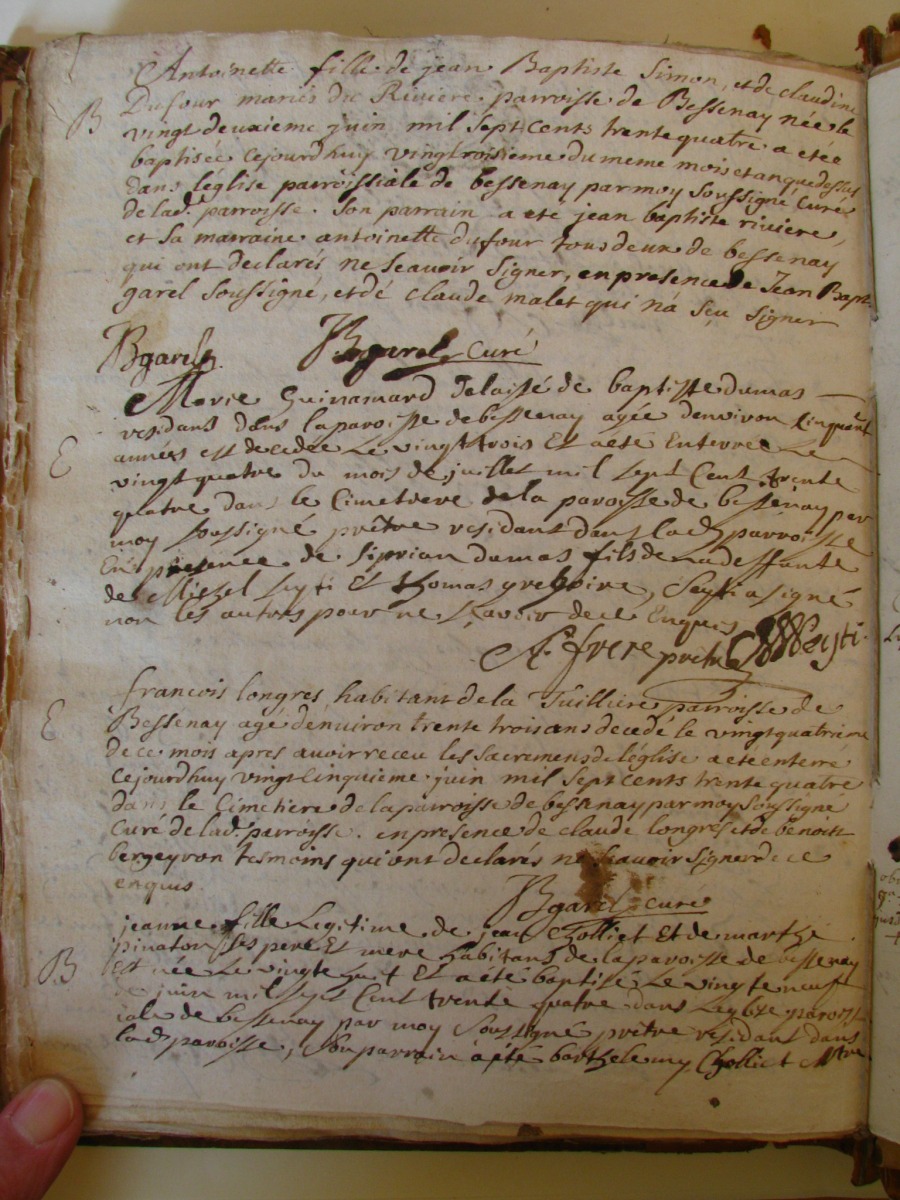 Antoinette fille de jean Baptiste Simon, et de claudine
B Dufour mariés du Riviere parroisse de Bessenay née le
vingt deuxieme juin mil sept cents trente quatre a etée
baptisée cejourdhuy vingtroisieme du meme mois et an que dessus
dans léglise parroissiale de bessenay par moy soussigné Curé
de lad. parroisse. Son parrain a eté jean baptiste riviere,
et sa marraine antoinette dufour tous deux de bessenay
qui ont declarés ne scavoir signer, en presence de Jean Bapt.
garel soussigné, et dé claude malet qui na sçu signer
Bgarel. Bgarel curé
Marie Guinamard delaissé de baptiste dumas
residant dans la paroisse de bessenay agée denviron cinquant
E années est decedee Le vingt trois Et a eté Enterree Le
vingt quatre du mois de juillet mil sept Cent trente
quatre dans le Cimetiere de la paroisse de bessenay par
moy soussigné prêtre residant dans lad. parroisse
En presence de Siprian dumas fils de lad deffunte
de Michel Seyti Et thomas gregoire, Seyti a signé
non les autres pour ne sçavoir de ce Enquis
A. frere prêtre MSeyti
francois longres habitant de la Tuilliere parroisse de
E Bessenay agé denuiron trente trois ans decedé le vingtquatrieme
de ce mois apres auoir receu les sacremens de léglise a eté enterré
cejourdhuy vingtcinquieme juin mil sept cents trente quatre
dans le Cimetiere de la parroisse de bessenay par moy soussigne
Curé de lad. parroisse. en presence de claude longres et de benoist
bergeyron tesmoins qui ont declarés ne scavoir signer de ce
enquis.
Bgarel curé
jeanne fille Legitime de jean Cholliet Et de marthe
pinaton ses pere Et mere habitans de la paroisse de bessenay
B Est née Le vingte huit Et a eté baptisé Le vingte neuf
de juin mil sept Cent trente quatre dans Leglise parois
iale de bessenay par moy soussigné prêtre residant dans
lad. paroisse, son parrain a eté barthelemy Cholliet